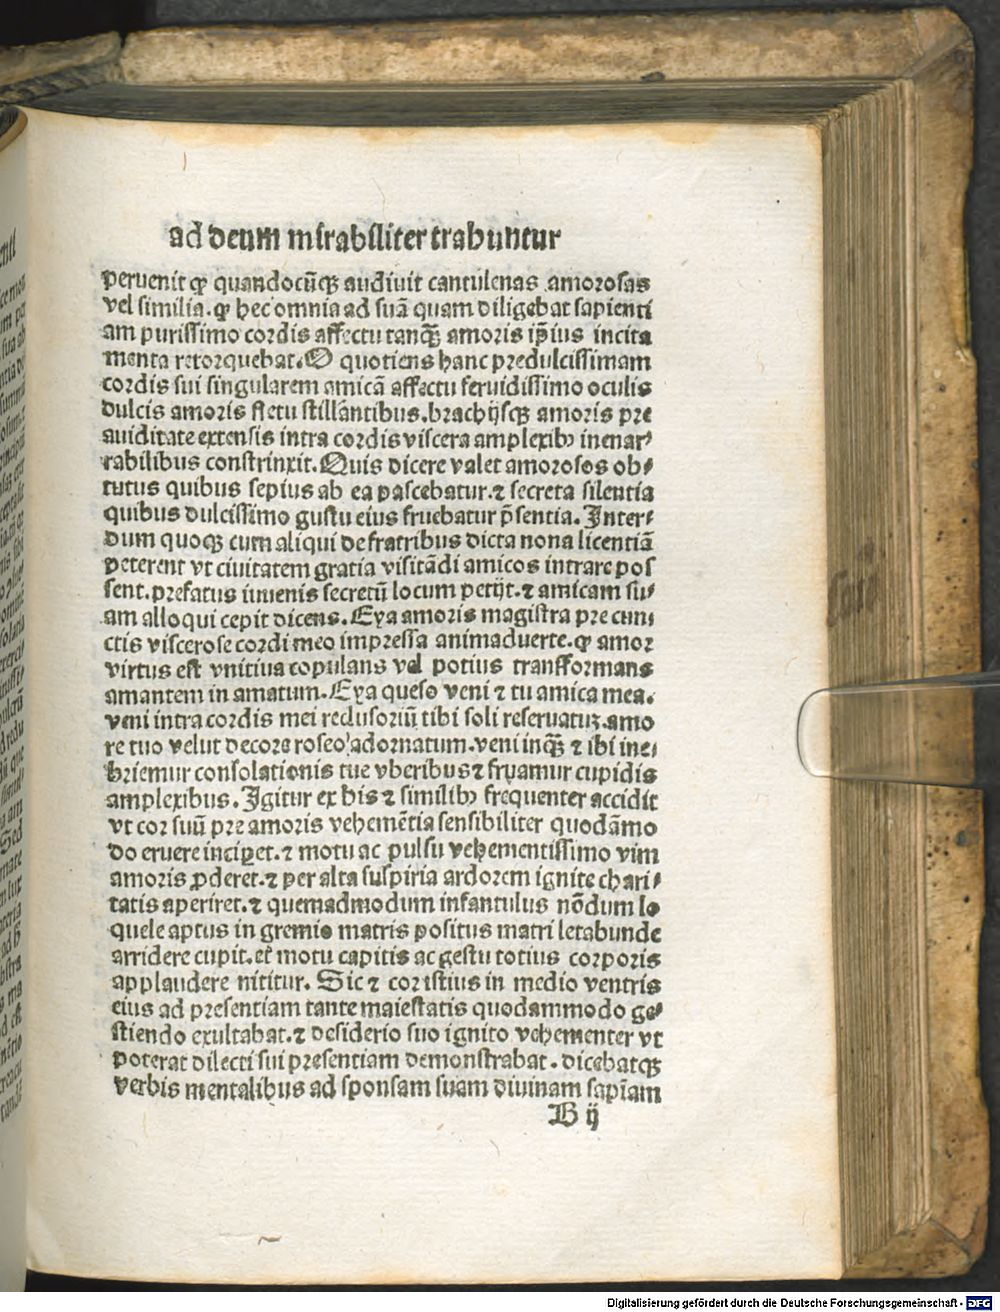 ad deum mirabiliter trahuntur
peruenit ꝙ quandocūqꝫ audiuit cantulenas amorosas
vel similia. ꝙ hec omnia ad suā quam diligebat sapienti
am purissimo cordis affectu tanqꝫ̄ amoris ip̄ius incita
menta retorquebat. O quotiens hanc predulcissimam
cordis sui singularem amicā affectu feruidissimo oculis
dulcis amoris fletu stillantibus. brachijsqꝫ amoris pre
auiditate extensis intra cordis viscera amplexibꝰ inenar⸗
rabilibus constrinxit. Quis dicere valet amorosos ob⸗
tutus quibus sepius ab ea pascebatur. ⁊ secreta silentia
quibus dulcissimo gustu eius fruebatur p̄sentia. Inter⸗
dum quoqꝫ cum aliqui de fratribus dicta nona licentiā
peterent vt ciuitatem gratia visitādi amicos intrare pos
sent. prefatus iuuenis secretū locum petijt. ⁊ amicam su⸗
am alloqui cepit dicens. Eya amoris magistra pre cun
ctis viscerose cordi meo impressa animaduerte. ꝙ amor
virtus est vnitiua copulans vel potius transformans
amantem in amatum. Eya queso veni ⁊ tu amica mea.
veni intra cordis mei reclusoriū tibi soli reseruatuꝫ. amo
re tuo velut decore roseo adornatum. veni inqꝫ̄ ⁊ ibi ine⸗
briemur consolationis tue vberibus ⁊ fruamur cupidis
amplexibus. Igitur ex his ⁊ similibꝰ frequenter accidit
vt cor suū pre amoris vehemētia sensibiliter quodāmo
do eruere inciꝑet. ⁊ motu ac pulsu vehementissimo vim
amoris ꝓderet. ⁊ per alta suspiria ardorem ignite chari⸗
tatis aperiret. ⁊ quemadmodum infantulus nōdum lo
quele aptus in gremio matris positus matri letabunde
arridere cupit. et motu capitis ac gestu totius corporis
applaudere nititur. Sic ⁊ cor istius in medio ventris
eius ad presentiam tante maiestatis quodammodo ge⸗
stiendo exultabat. ⁊ desiderio suo ignito vehementer vt
poterat dilecti sui presentiam demonstrabat. dicebatqꝫ
verbis mentalibus ad sponsam suam diuinam sapīam
B ij
Digitalisierung gefördert durch die Deutsche Forschungsgemeinschaft - DFG